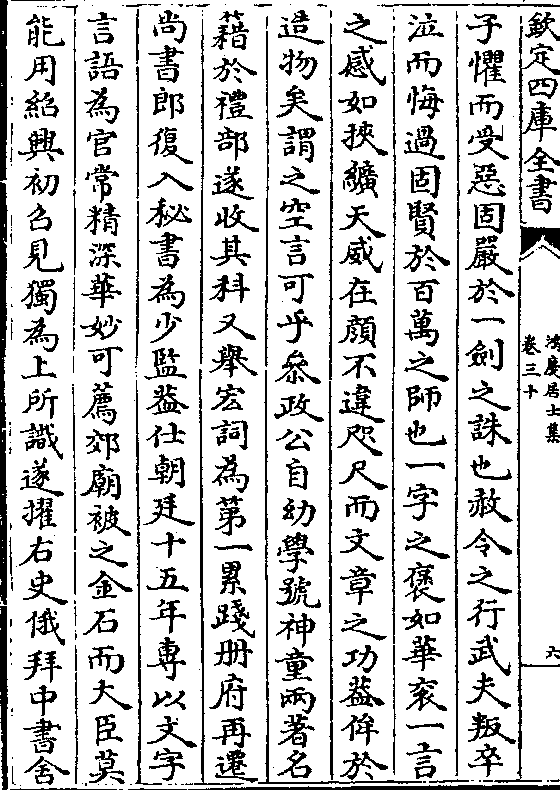 欽定四庫全書
鴻慶居士集
卷三十
六
子懼而受惡固嚴於一劍之誅也赦令之行武夫叛卒
泣而悔過固賢於百萬之師也一字之褒如華衮一言
之感如挾纊天威在顔不違咫尺而文章之功葢侔於
造物矣謂之空言可乎叅政公自幼學號神童兩著名
藉於禮部遂收其科又舉宏詞為第一累踐册府再遷
尚書郎復入秘書為少監葢仕朝廷十五年專以文字
言語為官常精深華妙可薦郊廟被之金石而大臣莫
能用紹興初召見獨為上所識遂擢右史俄拜中書舍